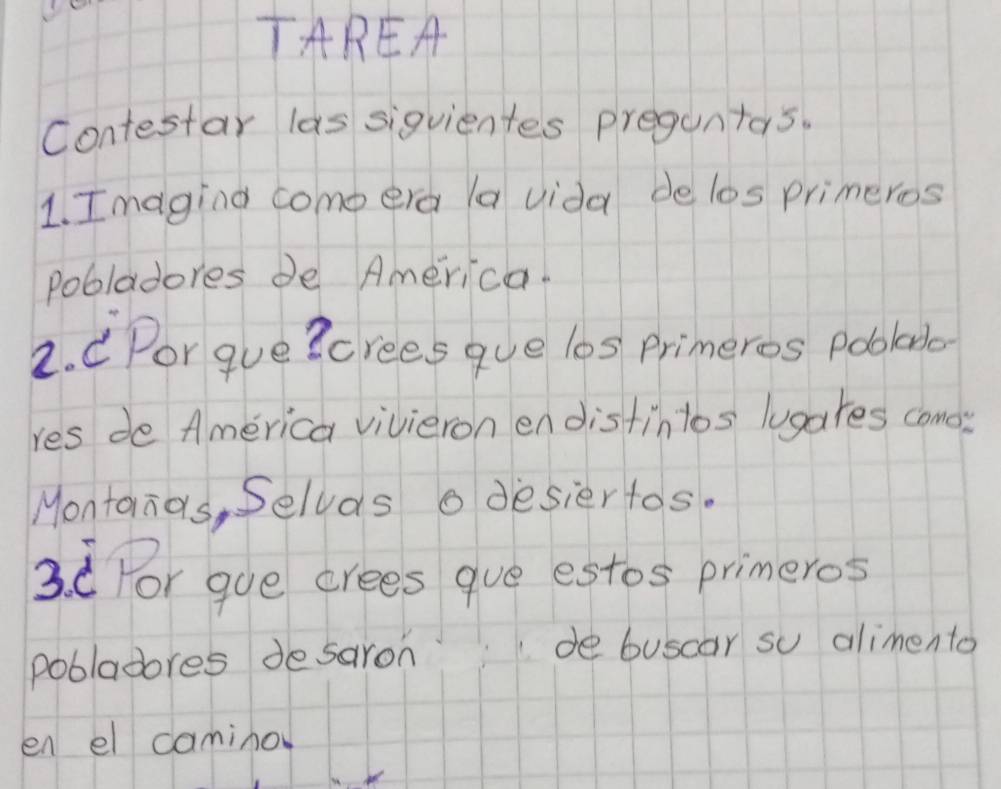 TAREA
Contestar las siguientes preguntas.
1. Imagina como era la vida de los primeros
pobladores de América.
2. ¿Por que? crees que los primeros poblado-
res de América vivieron en distintos lugares como:
Montañas, Selvas o desiertos.
3. ¿Por que crees que estos primeros
pobladores desaron de buscar su alimento
en el camino.